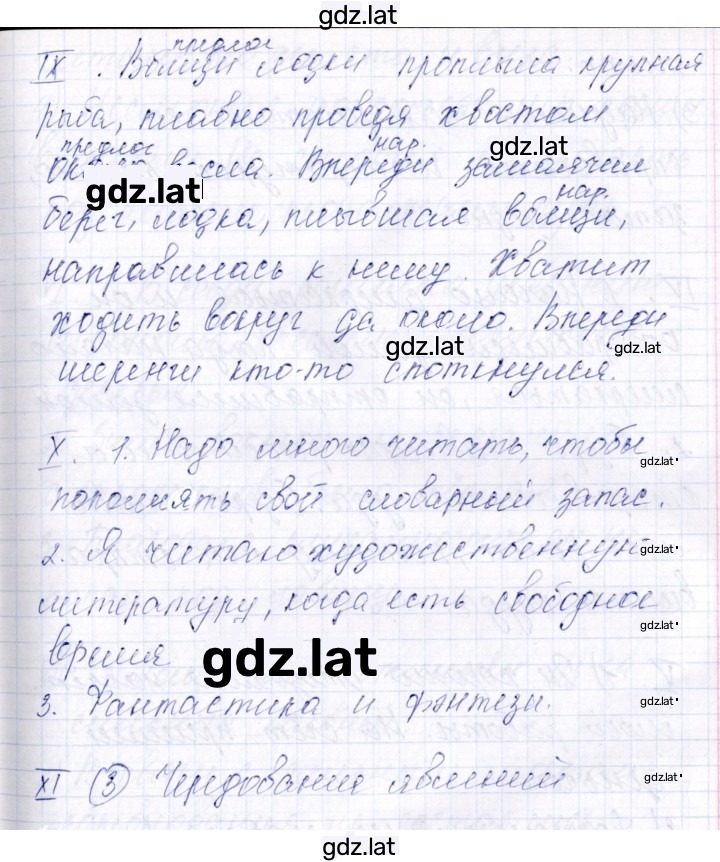 gdz.lat
предлог
IX . Вблизи лодки проплыла крупная
рыба, плавно проведя хвостом
предлог нар. gdz.lat
весла. Впереди замаячил
gdz.lat нар.
берег, лодка, плывшая вблизи,
направилась к нему. Хватит
ходить вокруг да около. Впереди
gdz.lat gdz.lat
шеренги кто-то споткнулся.
X. 1. Надо много читать, чтобы
gdz.lat
пополнять свой словарный запас.
2. Я читаю художественную
gdz.lat
литературу, когда есть свободное
gdz.lat
время
gdz.lat
3. Фантастика и фэнтези.
gdz.lat
XI (3) Чередование явлений
gdz.lat
gdz.lat